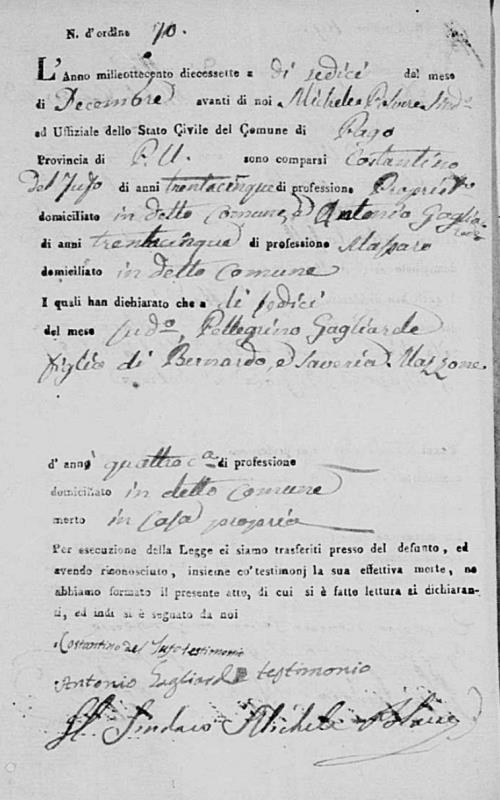 N. d'ordine 70.
L'Anno milleottecento diecessette a di sedici dal mese
di Decembre avanti di noi Michele Sind.o
ed Uffiziale dello Stato Civile del Comune di Pago
Provincia di P. U. sono comparsi Costantino
del Jujo di anni trentacinque di professione Propriet.o
domiciliato in detto comune, e Antonio Gagliarde
di anni trentacinque di professione Massaro
domiciliato in detto Comune
I quali han dichiarato che a di sedici
del mese sud.o, Pellegrino Gagliarde
figlio di Bernardo, e Saveria Mazzone
d' anni quattro c.a di professione
domiciliato in detto Comune
morto in casa propria
Per esecuzione della Legge ci siamo trasferiti presso del defunto, ed
avendo riconosciuto, insieme co' testimonj la sua effettiva morte, ne
abbiamo formato il presente atto, di cui si è fatto lettura ai dichiaran-
ti, ed indi si è segnato da noi
Costantino del Jujo testimonio
Antonio Gagliarde testimonio
Il Sindaco Michele